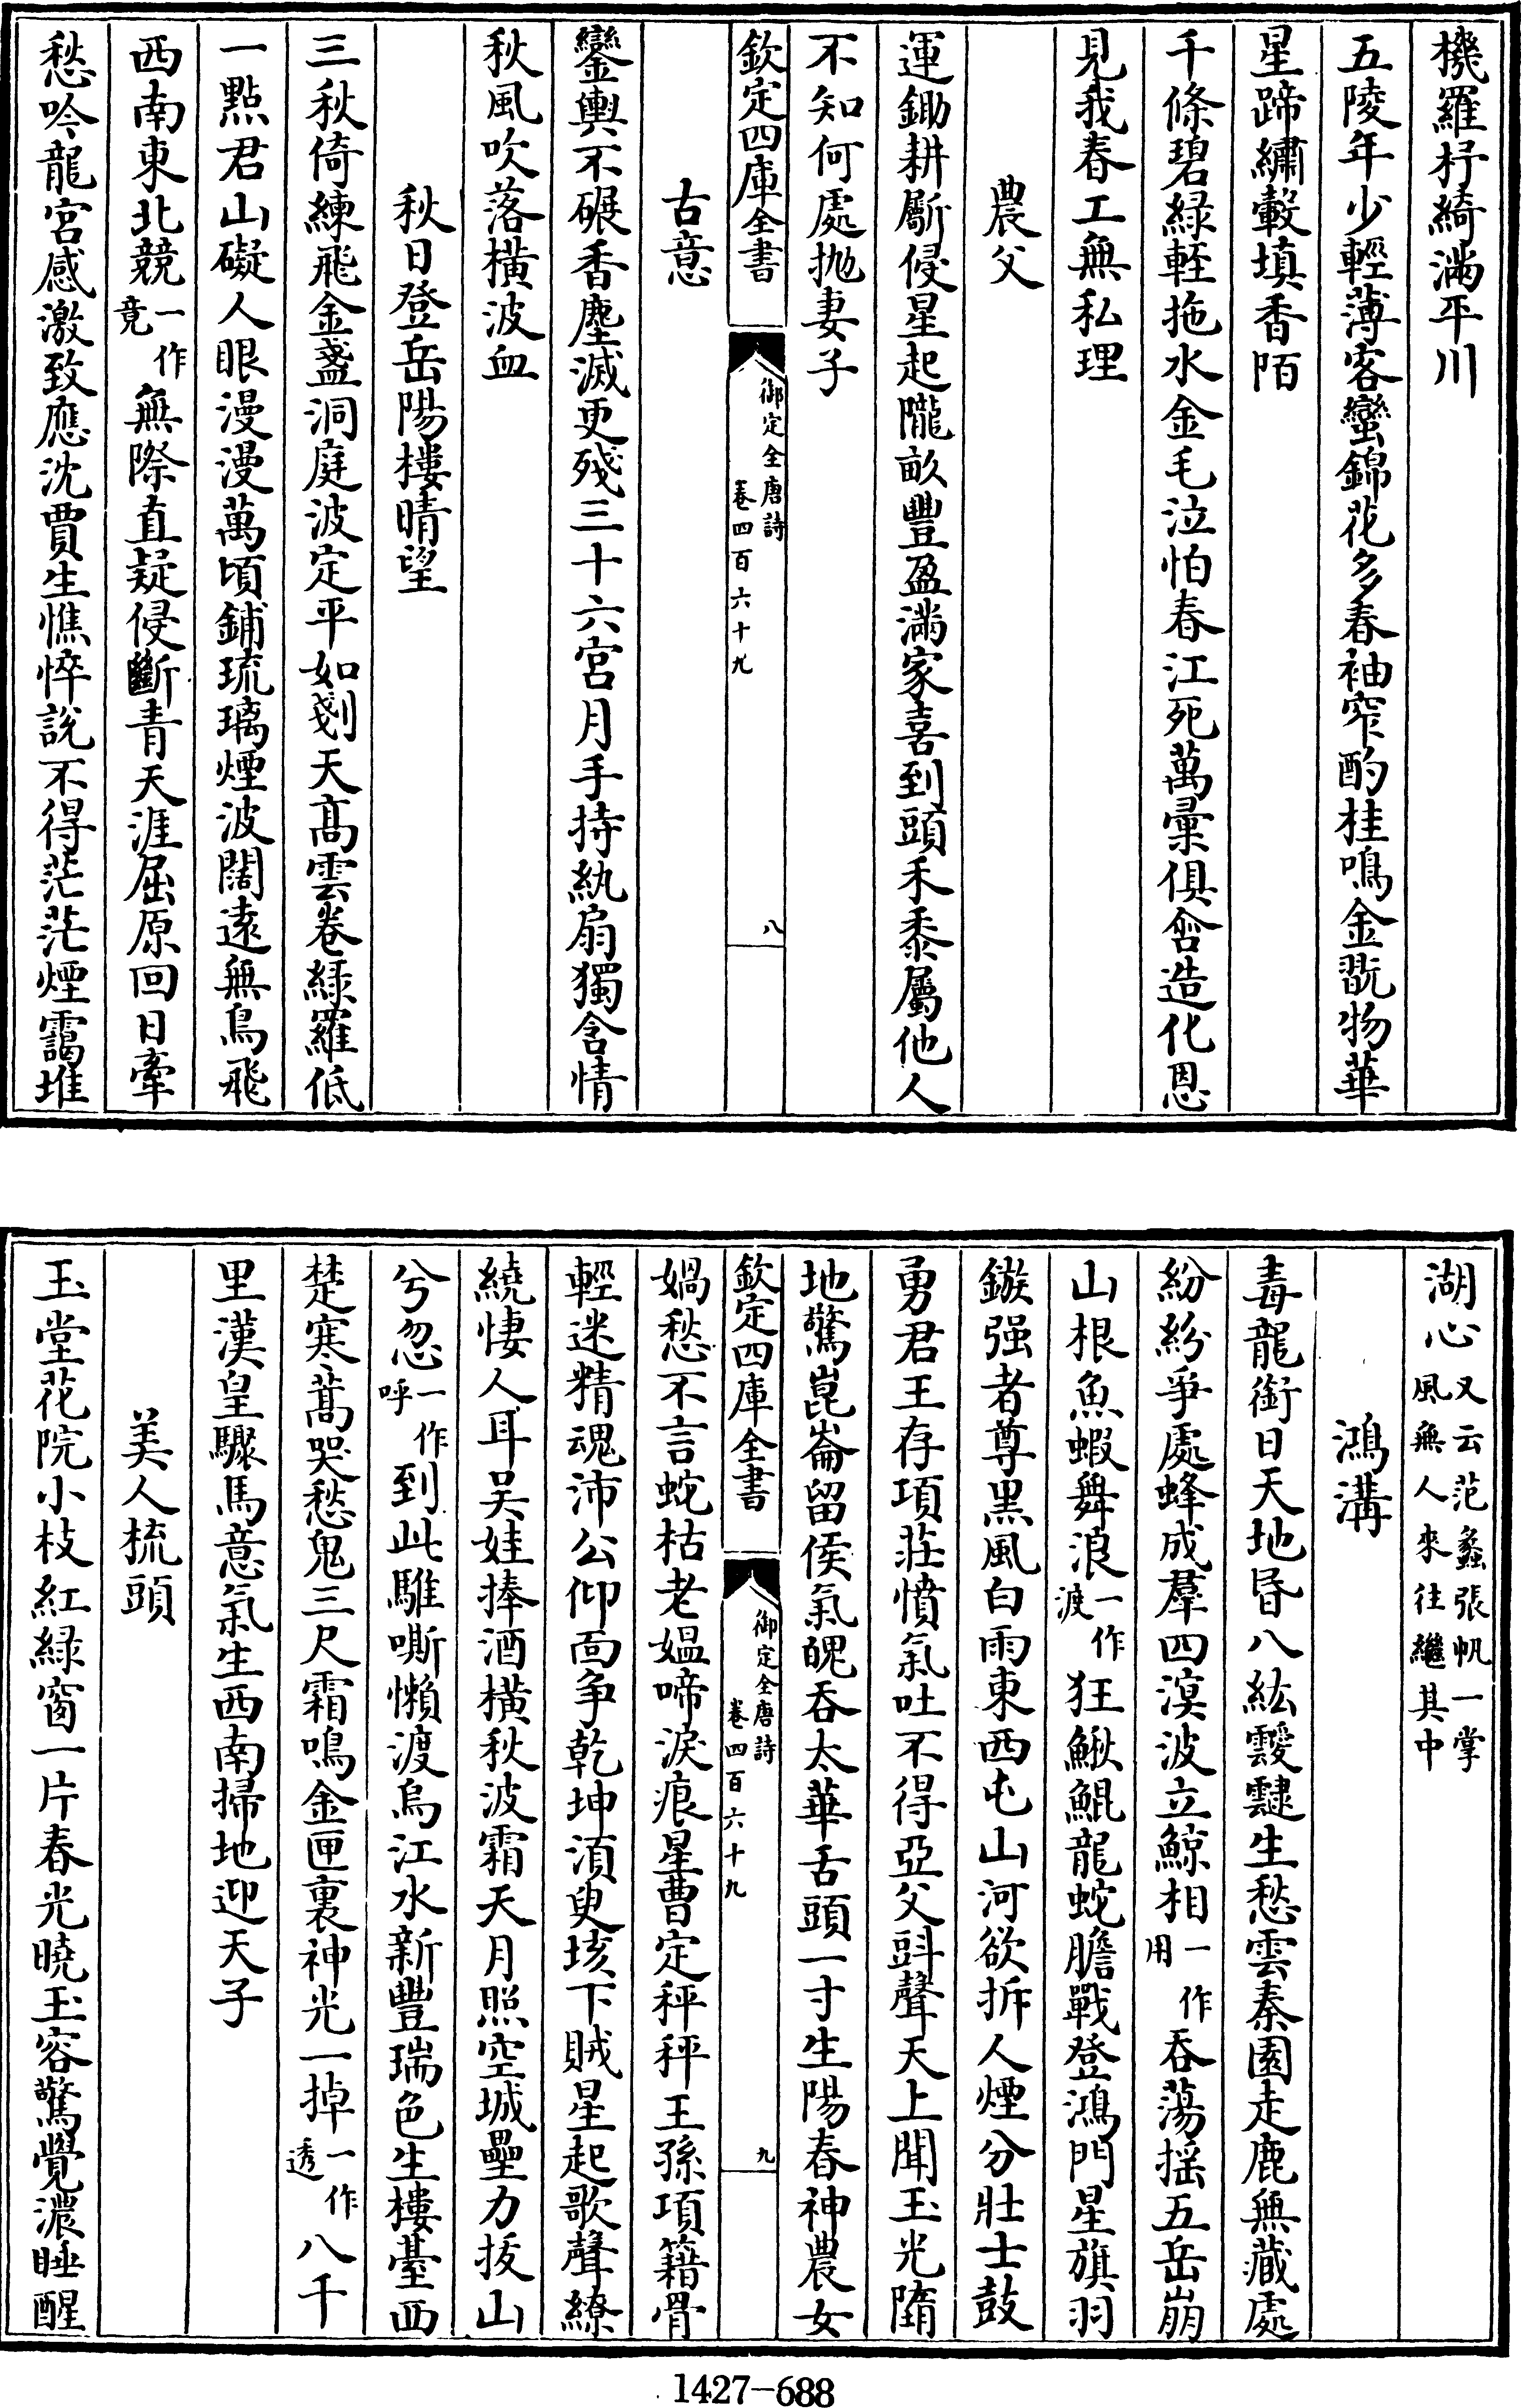 機羅杼綺滿平川
五陵年少輕薄客蠻錦花多春袖窄酌桂鳴金翫物華
星蹄繡轂填香陌
千條碧綠輕拖水金毛泣怕春江死萬彚俱含造化恩
見我春工無私理
農父
運鋤耕斸侵星起隴畝豐盈滿家喜到頭禾黍屬他人
不知何處抛妻子
欽定四庫全書
御定全唐詩
卷四百六十九
八
古意
鑾輿不碾香塵滅更殘三十六宮月手持紈扇獨含情
秋風吹落橫波血
秋日登岳陽樓晴望
三秋倚練飛金盞洞庭波定平如剗天髙雲卷綠羅低
一點君山礙人眼漫漫萬頃鋪琉璃煙波闊逺無鳥飛
西南東北競一作竟無際直疑侵斷青天涯屈原回日牽
愁吟龍宮感激致應沈賈生憔悴說不得茫茫煙靄堆
湖心又云范蠡張帆一掌風無人來往繼其中
鴻溝
毒龍銜日天地昏八紘靉靆生愁雲秦園走鹿無藏處
紛紛爭處蜂成羣四溟波立鯨相一作用吞蕩搖五岳崩
山根魚蝦舞浪一作渡狂鰍鯤龍蛇膽戰登鴻門星旗羽
鏃强者尊黑風白雨東西屯山河欲拆人煙分壯士鼓
勇君王存項莊憤氣吐不得亞父㪷聲天上聞玉光隳
地驚崑崙留侯氣魄吞太華舌頭一寸生陽春神農女
欽定四庫全書
御定全唐詩
卷四百六十九
九
媧愁不言蛇枯老媼啼淚痕星曹定秤秤王孫項籍骨
輕迷精魂沛公仰面爭乾坤須臾垓下賊星起歌聲繚
繞悽人耳吴娃捧酒橫秋波霜天月照空城壘力拔山
兮忽一作呼到此騅嘶懶渡烏江水新豐瑞色生樓臺西
楚寒蒿哭愁鬼三尺霜鳴金匣裏神光一掉一作透八千
里漢皇驟馬意氣生西南掃地迎天子
美人梳頭
玉堂花院小枝紅綠窗一片春光曉玉容驚覺濃睡醒
1427-688